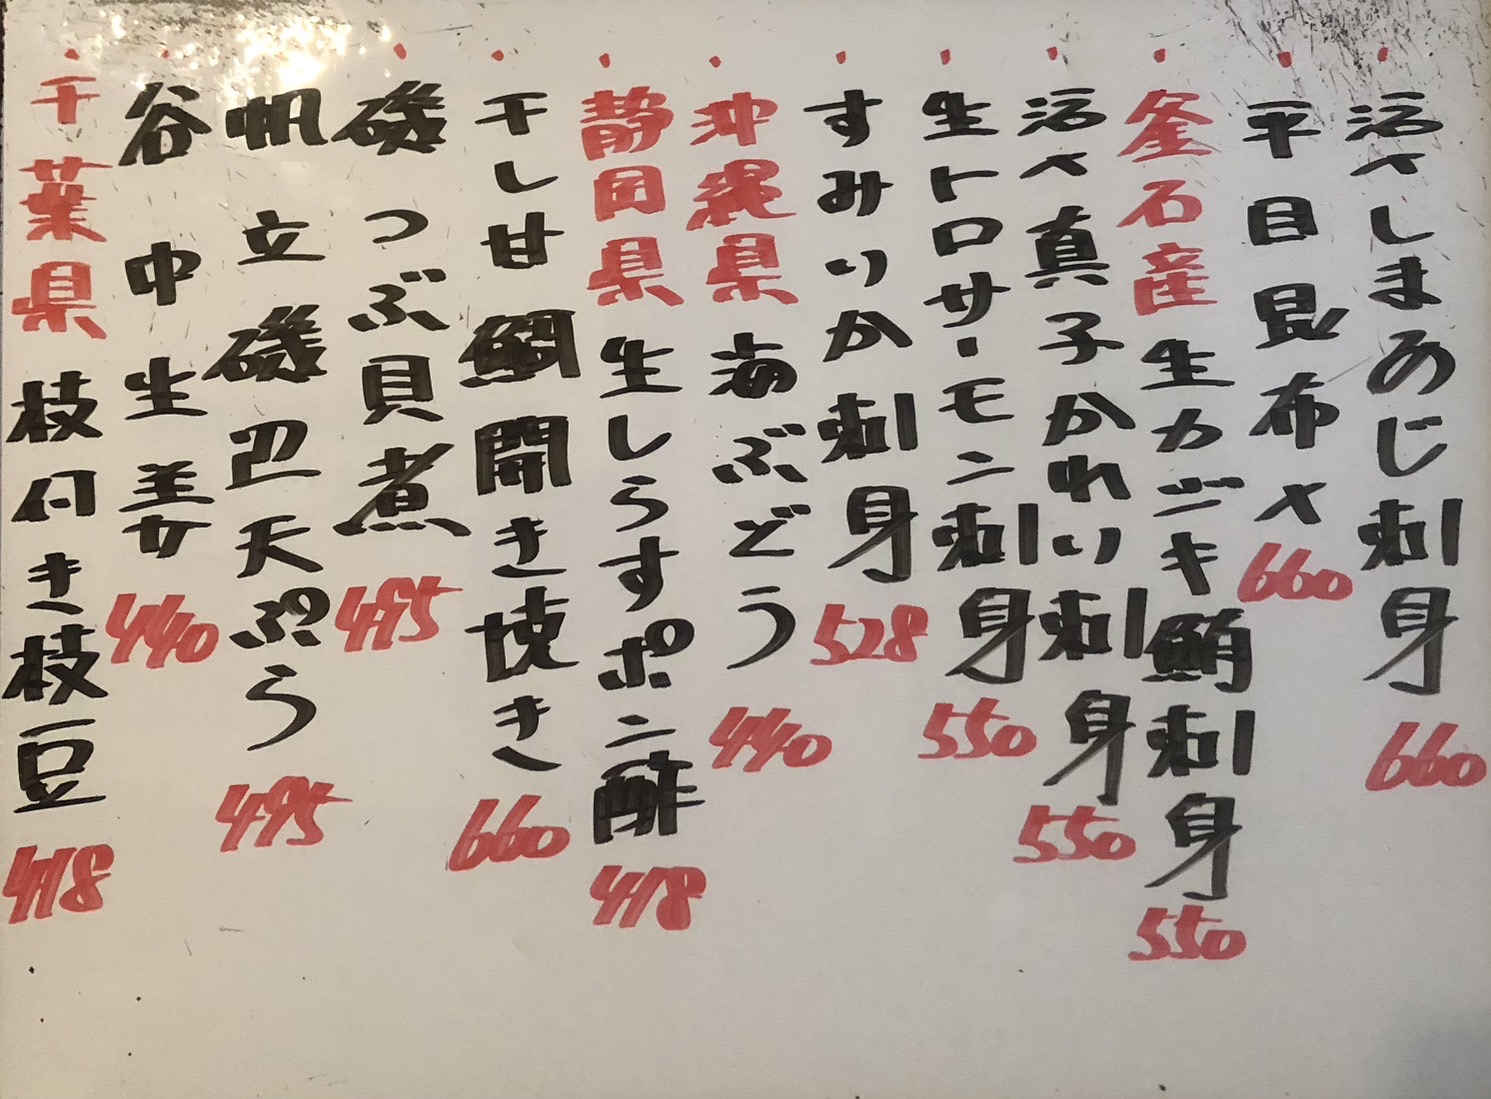 活〆しまあじ刺身 660
平目昆布〆 660
釜石産生カジキ鮪刺身 550
活〆真子かれい刺身 550
生トロサーモン刺身 550
すみいか刺身 528
沖縄県海ぶどう 440
静岡県生しらすポン酢 418
干し甘鯛開き焼き 660
磯つぶ貝煮 495
帆立磯辺天ぷら 495
谷中生姜 440
千葉県枝付き枝豆 418